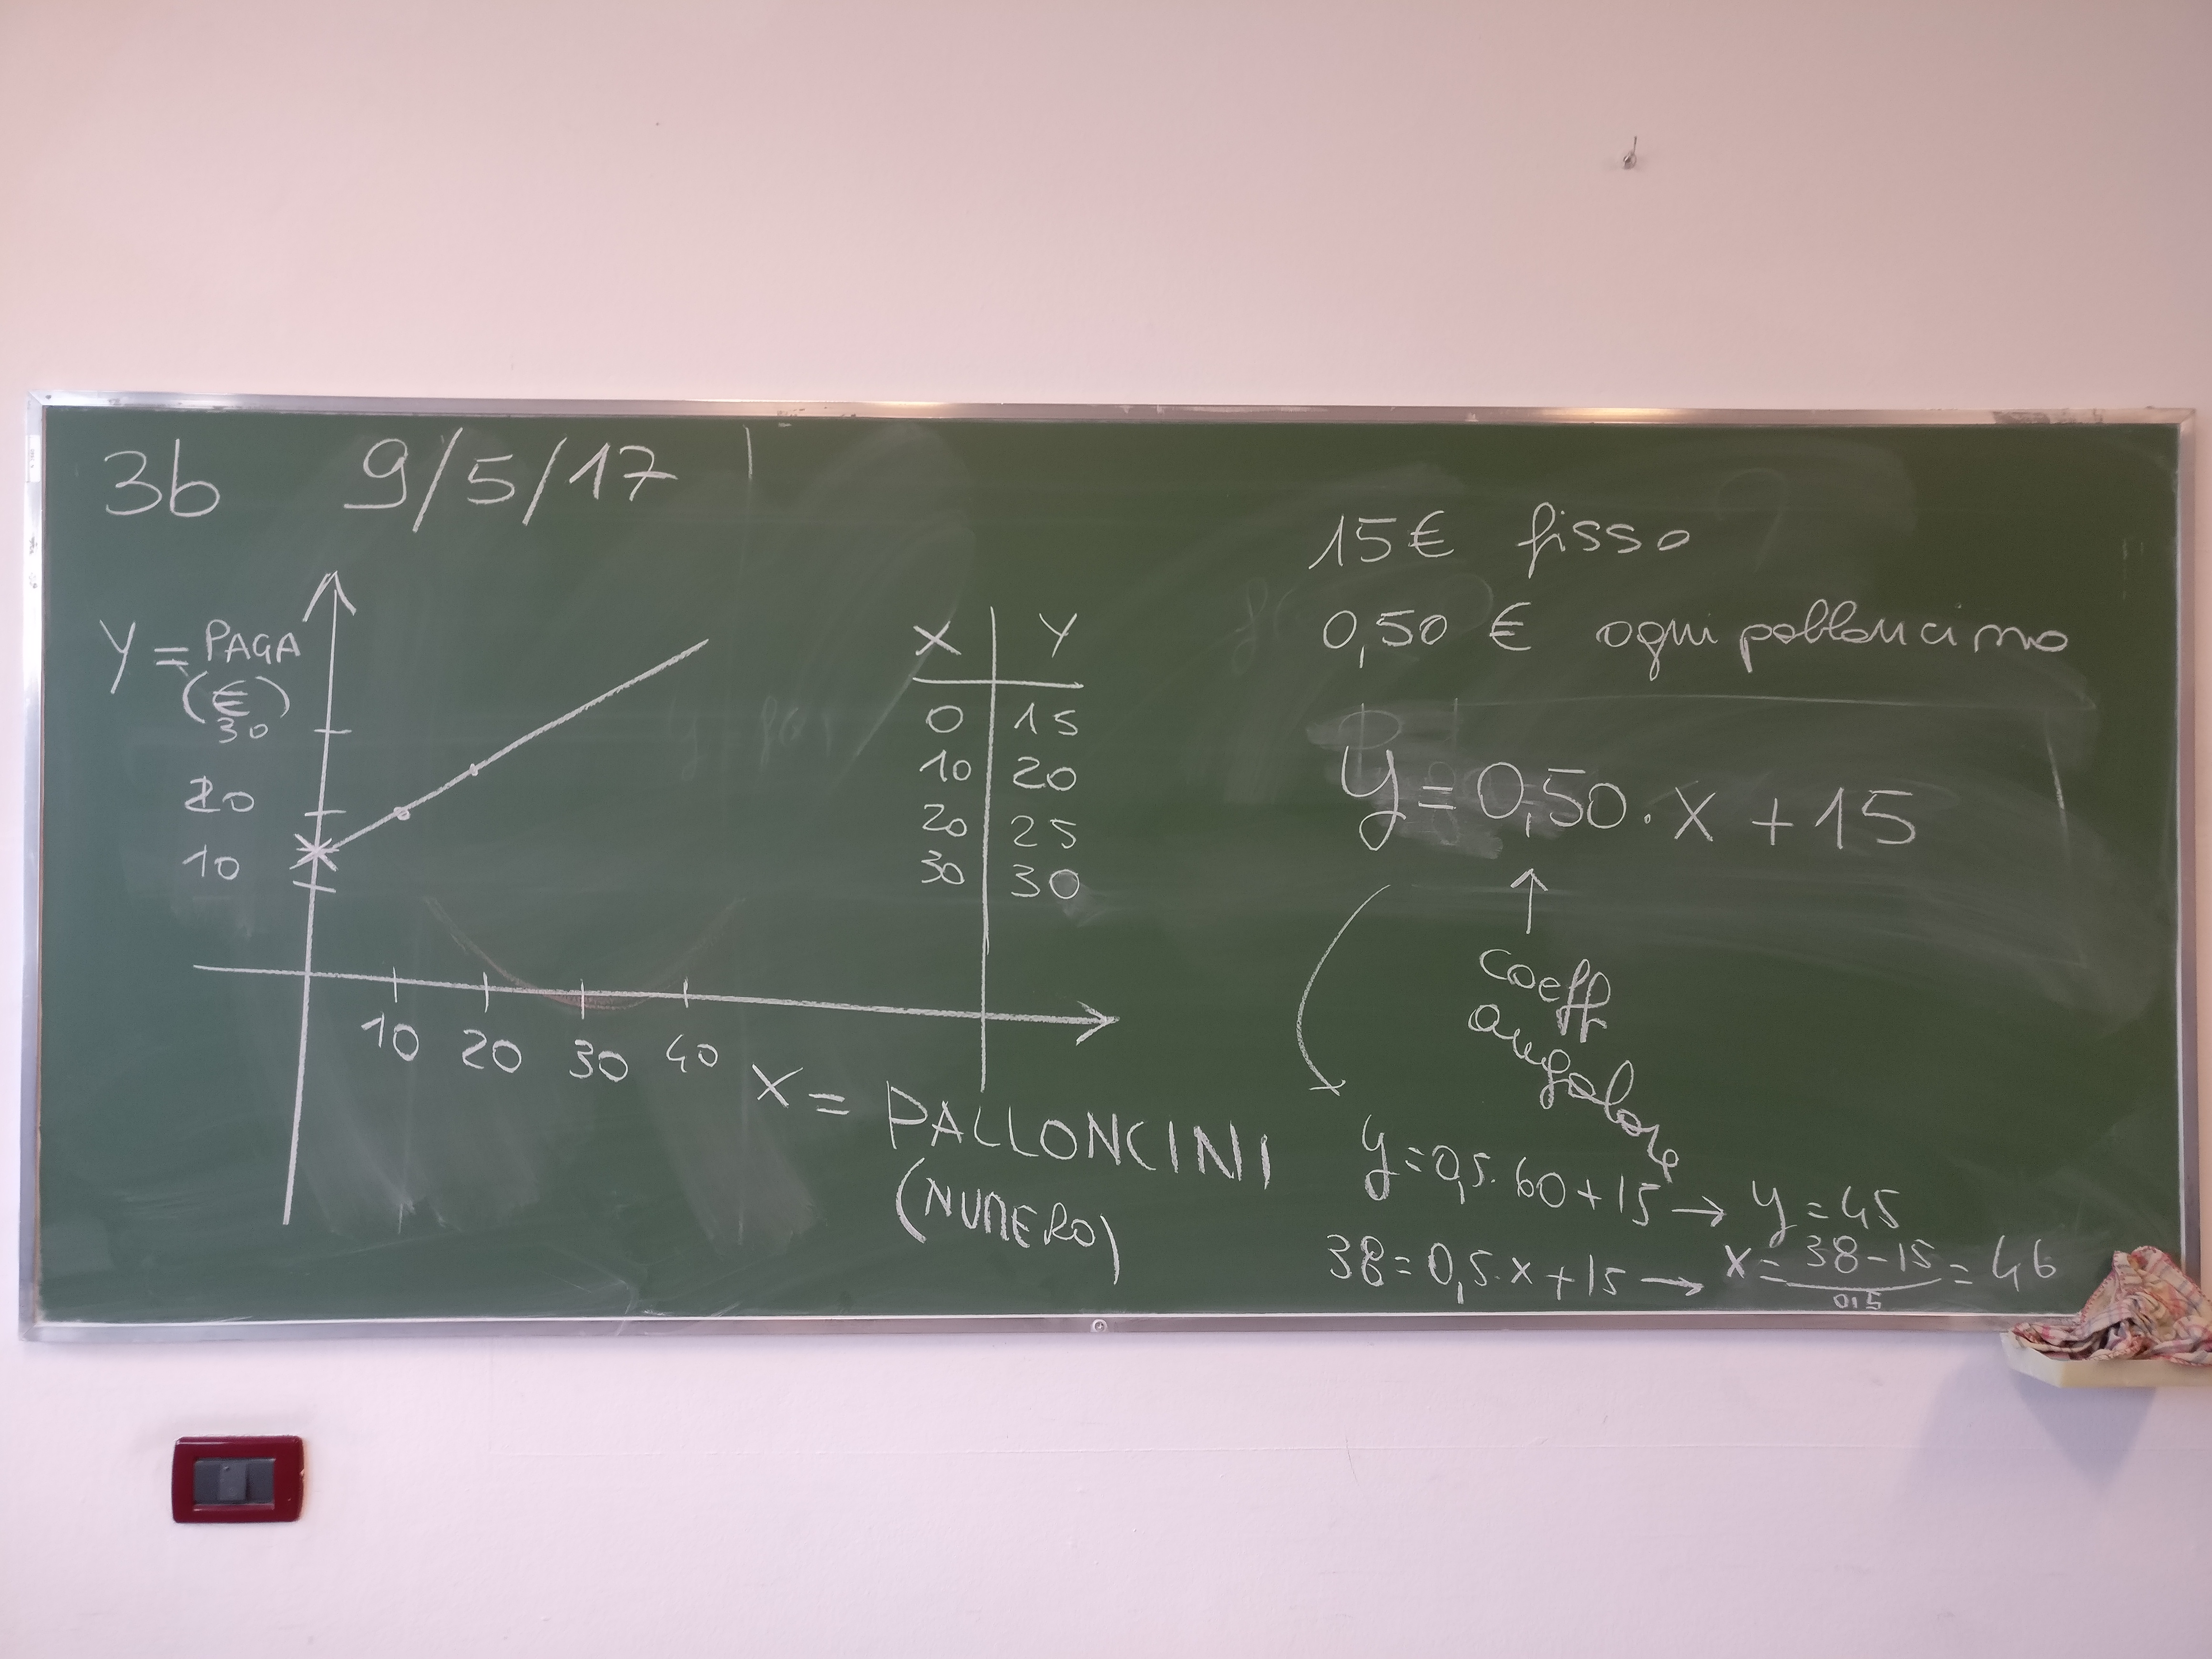 3b 9/5/17
Y = PAGA
(€)
30
20
10
10 20 30 40
X = PALLONCINI
(NUMERO)
X Y
0 15
10 20
20 25
30 30
15€ fisso
0,50 € ogni palloncino
y = 0,50 · x + 15
↑
coeff
angolare
y = 0,5 · 60 + 15 → y = 45
38 = 0,5 · x + 15 → x = 38 - 15 = 46
0,5